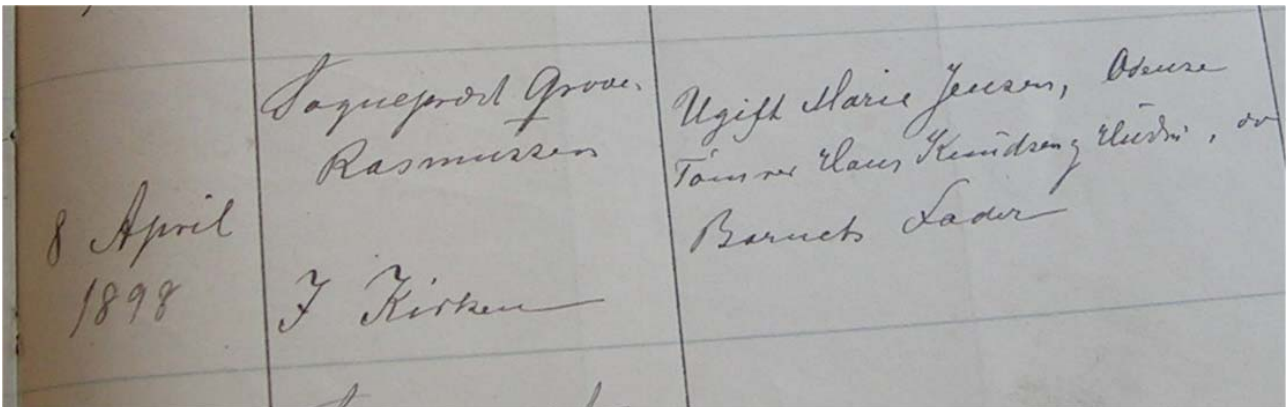 8 April
1898
Sognepræst Grove-
Rasmussen
I Kirken
Ugift Marie Jensen, Odense
Tømrer Hans Knudsen, og
Barnets Fader